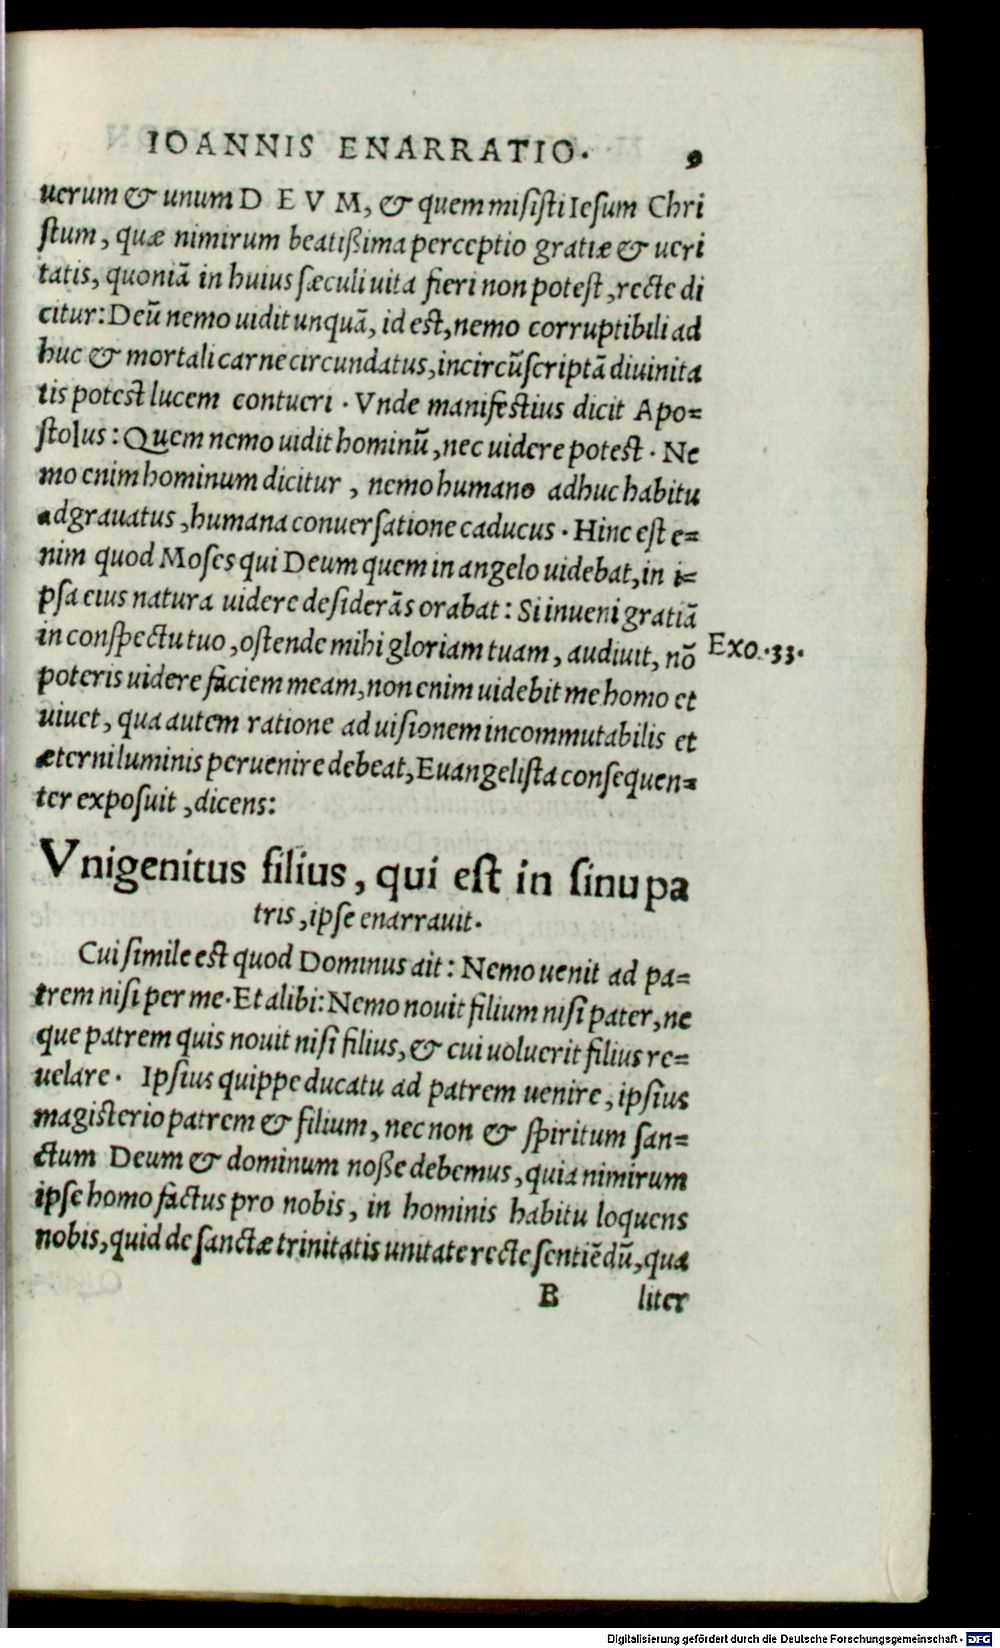 IOANNIS ENARRATIO. 9
uerum & unum D E V M, & quem misisti Iesum Chri
stum, quæ nimirum beatißima perceptio gratiæ & ueri
tatis, quoniã in huius sæculi uita fieri non potest, recte di
citur: Deũ nemo uidit unquã, id est, nemo corruptibili ad
huc & mortali carne circundatus, incircũscriptã diuinita
tis potest lucem contueri. Vnde manifestius dicit Apo=
stolus: Quem nemo uidit hominũ, nec uidere potest. Ne
mo enim hominum dicitur, nemo humano adhuc habitu
adgrauatus, humana conuersatione caducus. Hinc est e=
nim quod Moses qui Deum quem in angelo uidebat, in i=
psa eius natura uidere desiderãs orabat: Si inueni gratiã
in conspectu tuo, ostende mihi gloriam tuam, audiuit, nõ
Exo. 33.
poteris uidere faciem meam, non enim uidebit me homo et
uiuet, qua autem ratione ad uisionem incommutabilis et
æterni luminis peruenire debeat, Euangelista consequen=
ter exposuit, dicens:
Vnigenitus filius, qui est in sinu pa
tris, ipse enarrauit.
Cui simile est quod Dominus ait: Nemo uenit ad pa=
trem nisi per me. Et alibi: Nemo nouit filium nisi pater, ne
que patrem quis nouit nisi filius, & cui uoluerit filius re=
uelare. Ipsius quippe ducatu ad patrem uenire, ipsius
magisterio patrem & filium, nec non & spiritum san=
ctum Deum & dominum noße debemus, quia nimirum
ipse homo factus pro nobis, in hominis habitu loquens
nobis, quid de sanctæ trinitatis unitate recte sentiẽdũ, qua
B liter
Digitalisierung gefördert durch die Deutsche Forschungsgemeinschaft - DFG